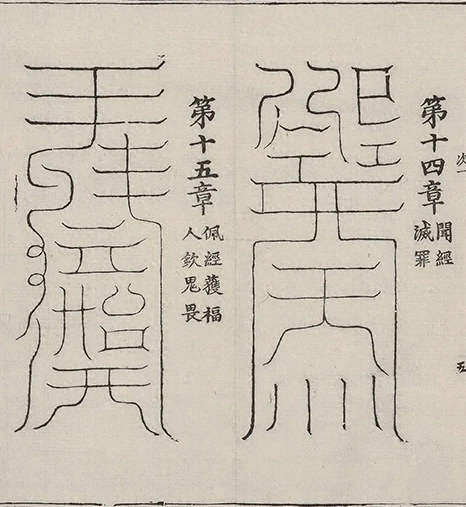 第十四章
聞經
滅罪
第十五章
佩經獲福
人欽鬼畏
五